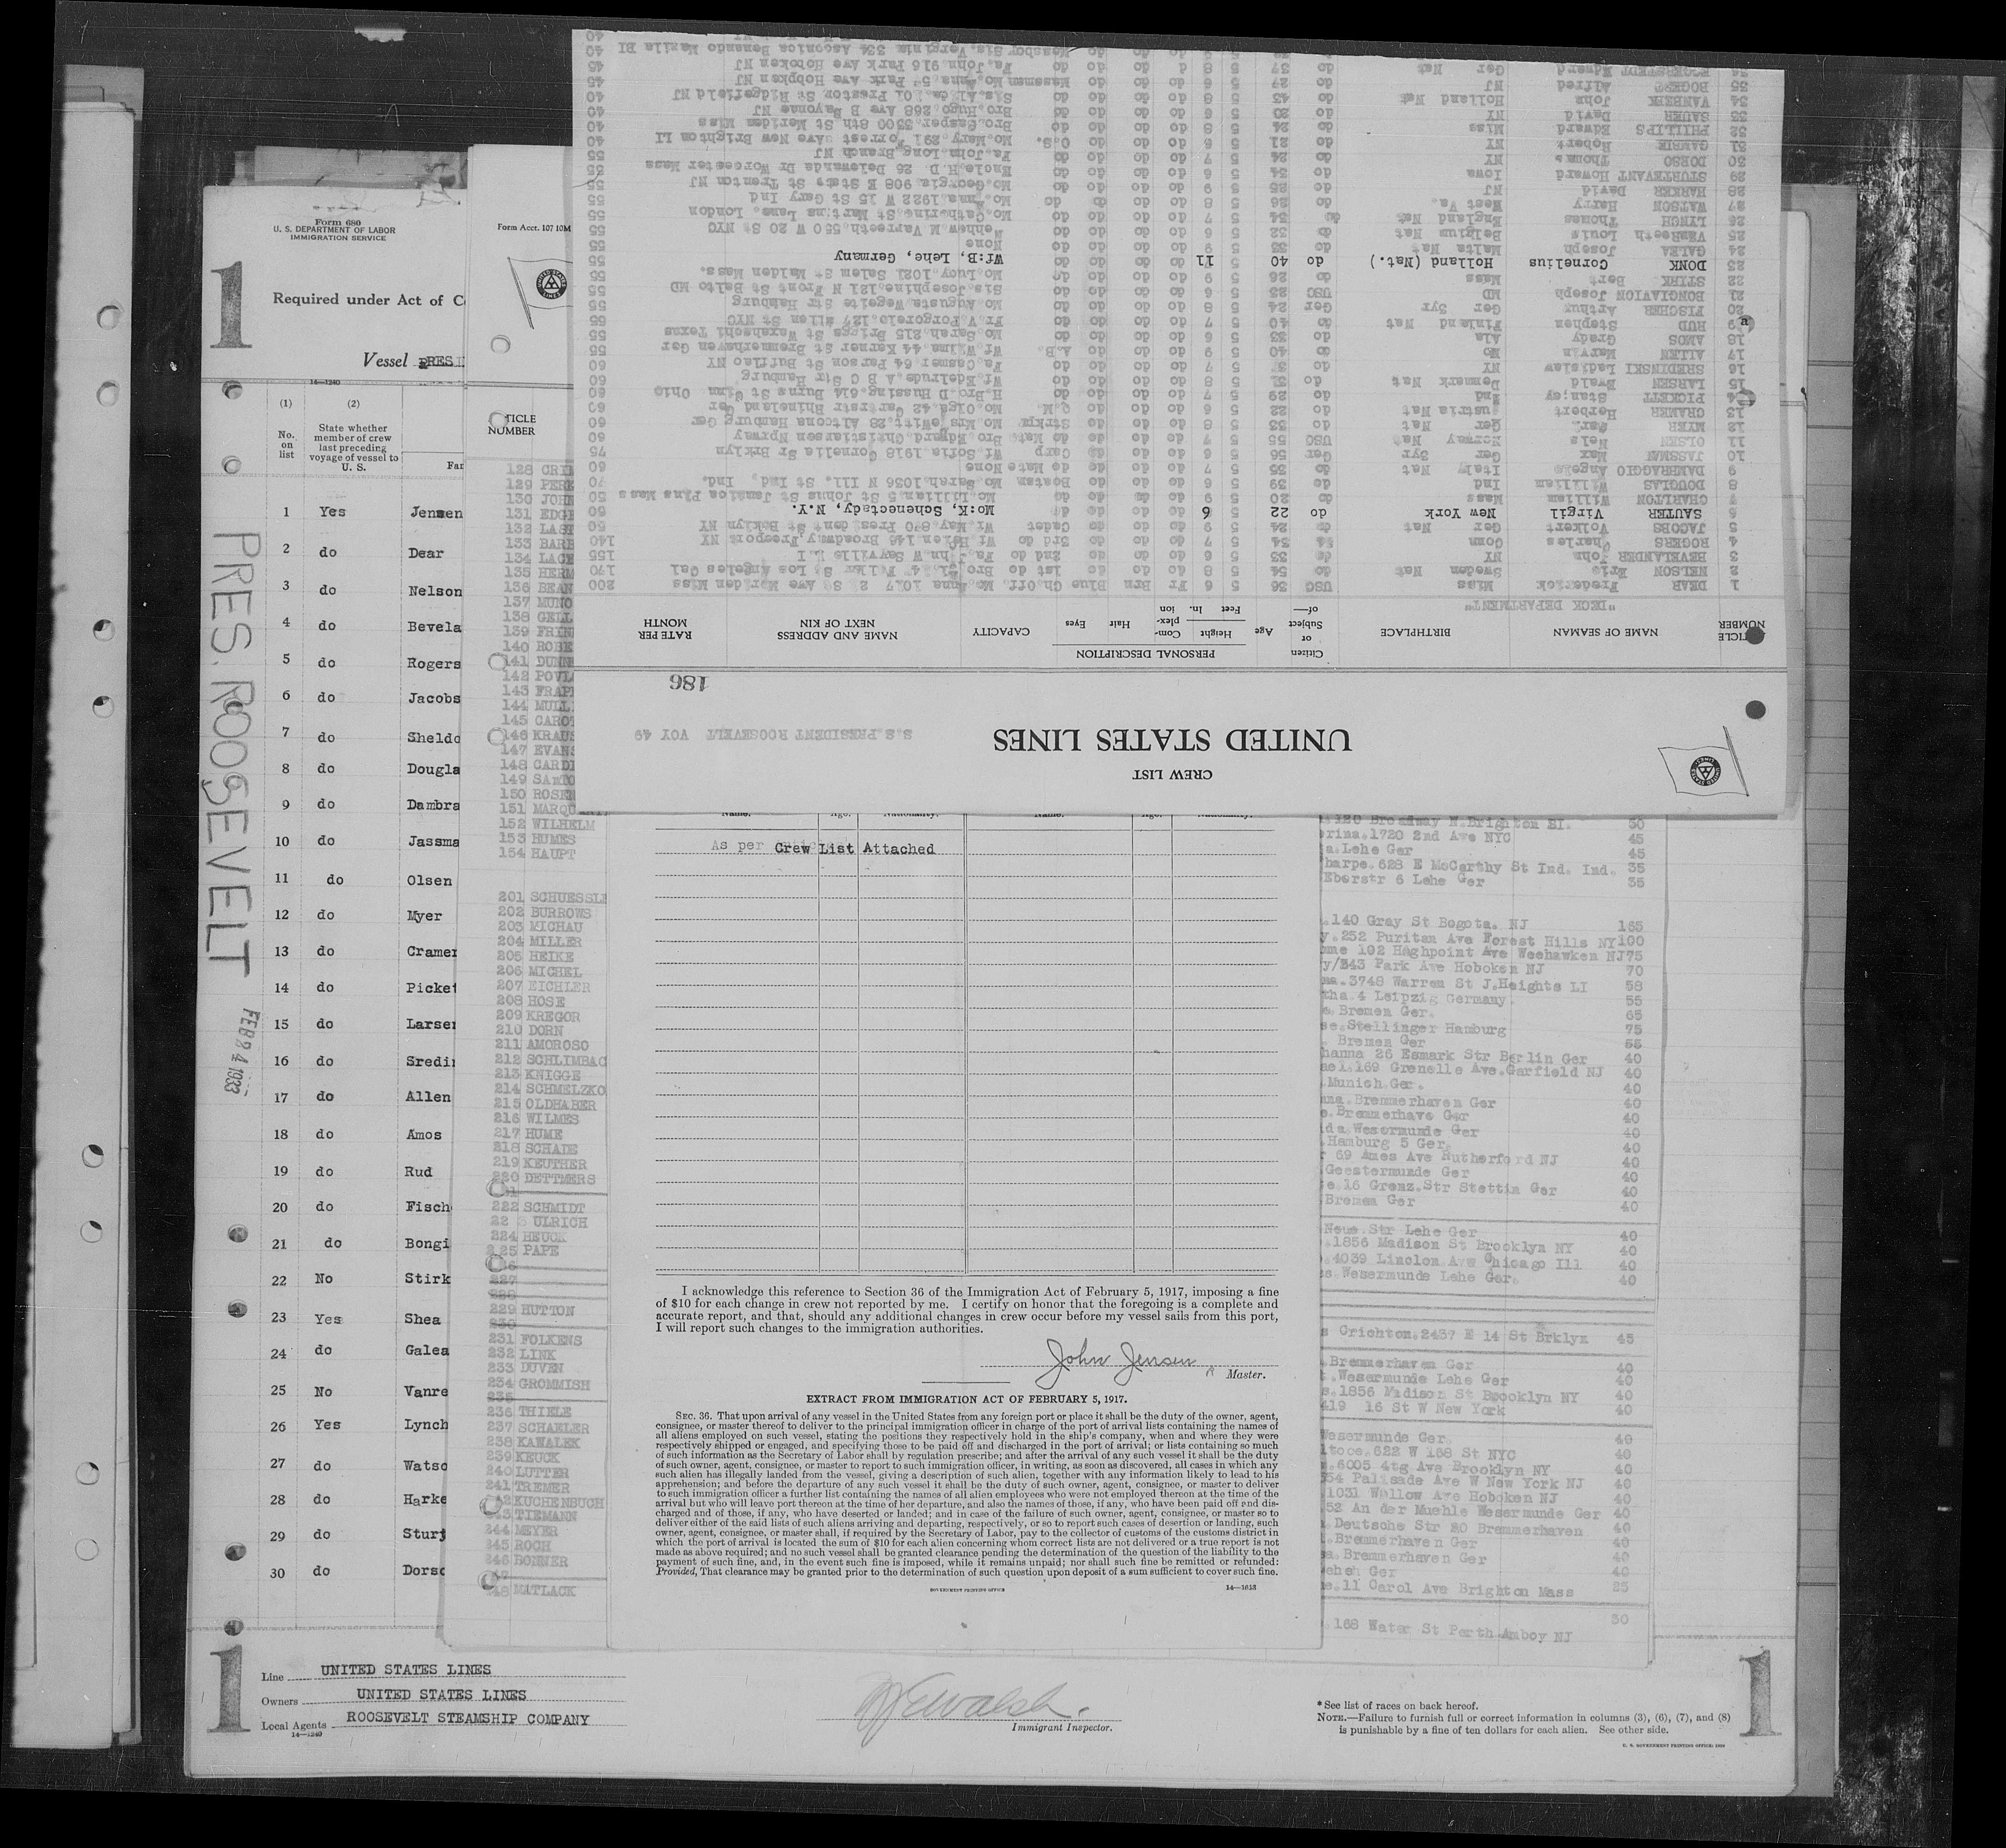 Form 680
U. S. DEPARTMENT OF LABOR
IMMIGRATION SERVICE
1
Required under Act of C
Vessel PRESI
14—1240
(1) (2)
No. on list
State whether member of crew last preceding voyage of vessel to U. S.
Far
1 Yes Jensen
2 do Dear
3 do Nelson
4 do Bevela
5 do Rogers
6 do Jacobs
7 do Sheldo
8 do Dougla
9 do Dambra
10 do Jassma
11 do Olsen
12 do Myer
13 do Cramer
14 do Picket
15 do Larsen
16 do Sredin
17 do Allen
18 do Amos
19 do Rud
20 do Fisch
21 do Bongi
22 No Stirk
23 Yes Shea
24 do Galea
25 No Vanre
26 Yes Lynch
27 do Watso
28 do Harke
29 do Sturj
30 do Dorso
PRES. ROOSEVELT
FEB 24 1933
Line UNITED STATES LINES
Owners UNITED STATES LINES
Local Agents ROOSEVELT STEAMSHIP COMPANY
14—1240
Immigrant Inspector.
* See list of races on back hereof.
NOTE.—Failure to furnish full or correct information in columns (3), (6), (7), and (8)
is punishable by a fine of ten dollars for each alien. See other side.
U. S. GOVERNMENT PRINTING OFFICE
1
Form Acct. 107 10M
TICLE
NUMBER
128 CRI
129 PER
130 JOH
131 EDG
132 LAS
133 BARB
134 LACE
135 HERM
136 BEAN
137 MUNO
138 GELL
139 FRIN
140 ROBE
141 DUNN
142 POVL
143 FRAP
144 MULL
145 CARO
146 KRAUS
147 EVANS
148 CARDI
149 SANTO
150 ROSEN
151 MARQU
152 WILHELM
153 HUMES
154 HAUPT
201 SCHUESSL
202 BURROWS
203 MICHAU
204 MILLER
205 HEIKE
206 MICHEL
207 EICHLER
208 HOSE
209 KREGOR
210 DORN
211 AMOROSO
212 SCHLIMBAC
213 KNIGGE
214 SCHMELZKO
215 OLDHABER
216 WILMES
217 HUME
218 SCHADE
219 KEUTHER
220 DETTMERS
222 SCHMIDT
22 ULRICH
224 HEUCK
225 PAPE
227
229 HUTTON
230
231 FOLKENS
232 LINK
233 DUVEN
234 GROMMISH
235
236 THIELE
237 SCHAELER
238 KAWALEK
239 KEUCK
240 LUTTER
241 TREMER
42 KUCHENBUCH
43 TIEMANN
244 MEYER
245 ROCH
246 BONNER
48 MATLACK
CREW LIST
UNITED STATES LINES
S.S. PRESIDENT ROOSEVELT VOY 49
186
TICLE NUMBER
NAME OF SEAMAN
BIRTHPLACE
Citizen or Subject of—
Age
PERSONAL DESCRIPTION
Height Feet In.
Complexion
Hair
Eyes
CAPACITY
NAME AND ADDRESS NEXT OF KIN
RATE PER MONTH
"DECK DEPARTMENT"
1 DEAR Frederick Miss USC 36 5 6 Fr Brn Blue Ch.Off. Mo. Anna 1017 2 St Ave Meriden Miss 200
2 NELSON Eric Sweden Nat do 54 5 8 do do do 1st do Los Angeles Cal 170
3 BEVELANDER John NY do 33 5 6 do do do 2nd do Fa. John W Sayville L I 155
4 ROGERS Charles Conn do 34 5 7 do do do 3rd do Wf Helen 146 Broadway, Freeport NY 140
5 JACOBS Volkert Ger Nat do 24 5 9 do do do Cadet Wf. May 870 President St Boklyn NY 50
6 SAUTER Virgil New York do 22 5 6 do do Mo:K, Schenectady, N.Y. 50
7 CHARLTON William Mass do 20 5 9 do do do Mo. Lillian 5 St Johns St Jamaica Plns Mass 50
8 DOUGLAS William Ind do 39 5 6 do do do Boatsn Mo. Sarah 1036 N Ill. St Ind, Ind. 70
9 DAMBRAGGIO Angelo Italy Nat do 35 5 7 do do do do Mate None 60
10 JASSMAN Max Ger 3yr Ger 56 5 6 do do do Carp Wf Sofia 1918 Cornelia Sr Brklyn 75
11 OLSEN Nels Norway Nat USC 55 5 7 do do do do Mate Bro. Edgard Christiansen Norway 60
12 MYER Karl Ger Nat do 33 5 8 do do do Strkpr Mo. Mrs Lewitt, 28 Altona Hamburg Ger 60
13 CRAMER Herbert Austria Nat do 22 5 6 do do do Q.M. Mo. Olga 42 Garstr Rhineland Ger 60
14 PICKETT Stanley Ind do 29 5 7 do do do do H.Bro. D Hussing 614 Burns St Cinn Ohio 60
15 LARSEN Evald Denmark Nat do 31 5 8 do do do do Wf. Edelrude A B C Str Hamburg 60
16 SREDINSKI Ladislaw NY do 5 7 do do do do Fa. Casmer 64 Parson St Buffleo NY 60
17 ALLEN Marvin Mo do 40 5 9 do do do A.B. Wf Wilma 44 Karner St Bremmerhaven Ger 55
18 AMOS Grady Ala do 33 5 6 do do do do Mo Sarah 215 Briggs St Waxahachi Texas 55
19 RUD Stephen Finland Nat do 40 5 7 do do do do Fr. V Forgorelo 127 Allen St NYC 55
20 FISCHER Arthur Ger 3yr Ger 24 5 8 do do do do Mo Augusta Wegeite Str Hamburg 55
21 BONGIAVION Joseph MD USC 25 5 6 do do do do Sis. Josephine 121 N Front St Balto MD 55
22 STIRK Bert Mass do 26 5 9 do do do do Mo. Lucy 1021 Salem St Malden Mass. 55
23 DONK Cornelius Holland (Nat.) do 40 5 11 do do do do Wf:B, Lehe, Germany 55
24 GALEA Joseph Malta Nat do 33 5 9 do do do do None 55
25 VANReeth Louis Belgium Nat do 32 5 6 do do do do Nephew M Vanreeth 550 W 20 St NYC 55
26 LYNCH Thomas England Nat do 34 5 7 do do do do Mo. Catherine St Martins Lane. London 55
27 WATSON Harry West Va. do 26 5 8 do do do do Mo. Anna 1922 W 15 St Gary Ind 55
28 HARKER David NJ do 25 5 9 do do do do Mo. Georgia 908 E State St Trenton NJ 55
29 STURTEVANT Howard Iowa do 34 5 6 do do do do Uncle H. D 26 Delewanda Dr Worcester Mass 55
30 DORSO Thomas NY do 24 5 7 do do do do Fa. John Long Branch NJ 55
31 GAMBIE Robert NY do 21 5 6 do do do O.S. Mo. Mary 291 Forrest Ave New Brighton LI 40
32 PHILLIPS Edward Miss do 24 5 8 do do do do Bro. Casper 3300 8th St Meriden Miss 40
33 SAUER David NY do 20 5 6 do do do do Bro. Hugo 268 Ave B Bayonne NJ 40
34 VANBEEK John Holland Nat do 43 5 8 do do do do Sis. Alida 101 Prestor St Ridgefield NJ 40
35 BOGERT Alfred NJ do 27 5 6 do do do Messman Mo. Anna 5 Park Ave Hobpken NJ 45
36 Edward Ger Nat do 37 5 8 do do do do Fa. John 916 Park Ave Hoboken NJ 45
Messboy Sis. Verginia 334 Asconica Benando Manila PI 40
Name. Age. Nationality. Name. Age. Nationality.
As per Crew List Attached
I acknowledge this reference to Section 36 of the Immigration Act of February 5, 1917, imposing a fine
of $10 for each change in crew not reported by me. I certify on honor that the foregoing is a complete and
accurate report, and that, should any additional changes in crew occur before my vessel sails from this port,
I will report such changes to the immigration authorities.
John Jensen
Master.
EXTRACT FROM IMMIGRATION ACT OF FEBRUARY 5, 1917.
SEC. 36. That upon arrival of any vessel in the United States from any foreign port or place it shall be the duty of the owner, agent,
consignee, or master thereof to deliver to the principal immigration officer in charge of the port of arrival lists containing the names of
all aliens employed on such vessel, stating the positions they respectively hold in the ship's company, when and where they were
respectively shipped or engaged, and specifying those to be paid off and discharged in the port of arrival; or lists containing so much
of such information as the Secretary of Labor shall by regulation prescribe; and after the arrival of any such vessel it shall be the duty
of such owner, agent, consignee, or master to report to such immigration officer, in writing, as soon as discovered, all cases in which any
such alien has illegally landed from the vessel, giving a description of such alien, together with any information likely to lead to his
apprehension; and before the departure of any such vessel it shall be the duty of such owner, agent, consignee, or master to deliver
to such immigration officer a further list containing the names of all alien employees who were not employed thereon at the time of the
arrival but who will leave port thereon at the time of her departure, and also the names of those, if any, who have been paid off and dis-
charged and of those, if any, who have deserted or landed; and in case of the failure of such owner, agent, consignee, or master so to
deliver either of the said lists of such aliens arriving and departing, respectively, or so to report such cases of desertion or landing, such
owner, agent, consignee, or master shall, if required by the Secretary of Labor, pay to the collector of customs of the customs district in
which the port of arrival is located the sum of $10 for each alien concerning whom correct lists are not delivered or a true report is not
made as above required; and no such vessel shall be granted clearance pending the determination of the question of the liability to the
payment of such fine, and, in the event such fine is imposed, while it remains unpaid; nor shall such fine be remitted or refunded:
Provided, That clearance may be granted prior to the determination of such question upon deposit of a sum sufficient to cover such fine.
GOVERNMENT PRINTING OFFICE 14—1613
120 Broadway N.Brighton SI. 50
rina.1720 2nd Ave NYC 45
a.Lehe Ger 45
harpe.628 E McCarthy St Ind. Ind. 35
Eberstr 6 Lehe Ger 35
.140 Gray St Bogota. NJ 165
y.252 Puritan Ave Forest Hills NY 100
mme 102 Haghpoint Ave Weehawken NJ 75
y/343 Park Ave Hoboken NJ 70
na.3748 Warren St J.Heights LI 58
tha.4 Leipzig Germany. 55
e.Bremen Ger. 65
se.Stellinger Hamburg 75
. Bremen Ger 55
hanna 26 Esmark Str Berlin Ger 40
ael.169 Grenelle Ave.Garfield NJ 40
.Munich.Ger. 40
na.Bremmerhaven Ger 40
e.Bremmerhave Ger 40
da.Wesermunde Ger 40
.Hamburg 5 Ger. 40
69 Ames Ave Rutherford NJ 40
Geestermunde Ger 40
e.16 Grenz.Str Stettin Ger 40
Bremen Ger 40
Neue.Str Lehe Ger 40
.1856 Madison St Brooklyn NY 40
.4039 Lincoln Ave Chicago Ill 40
s.Wesermunde Lehe Ger. 40
s Crichton.2437 E 14 St Brklyn 45
Bremmerhaven Ger 40
.Wesermunde Lehe Ger 40
s.1856 Madison St Brooklyn NY 40
419 16 St W New York 40
Wesermunde Ger. 40
ltoce.622 W 168 St NYC 40
.6005 4tg Ave Brooklyn NY 40
554 Palisade Ave W New York NJ 40
1031 Wallow Ave Hoboken NJ 40
52 An der Muehle Wesermunde Ger 40
.Deutsche Str 20 Bremmerhaven 40
.Bremmerhaven Ger 40
a.Bremmerhaven Ger 40
eheh Ger 40
e.11 Carol Ave Brighton Mass 25
168 Water St Perth Amboy NJ 50